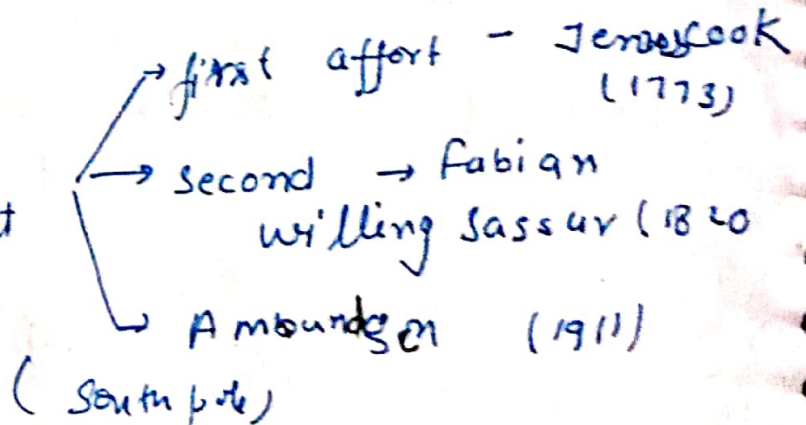 → first affort - Jemescook
(1773)
→ second → fabian
willing sassur (1820
t
→ Amoundsen (1911)
(South pole)